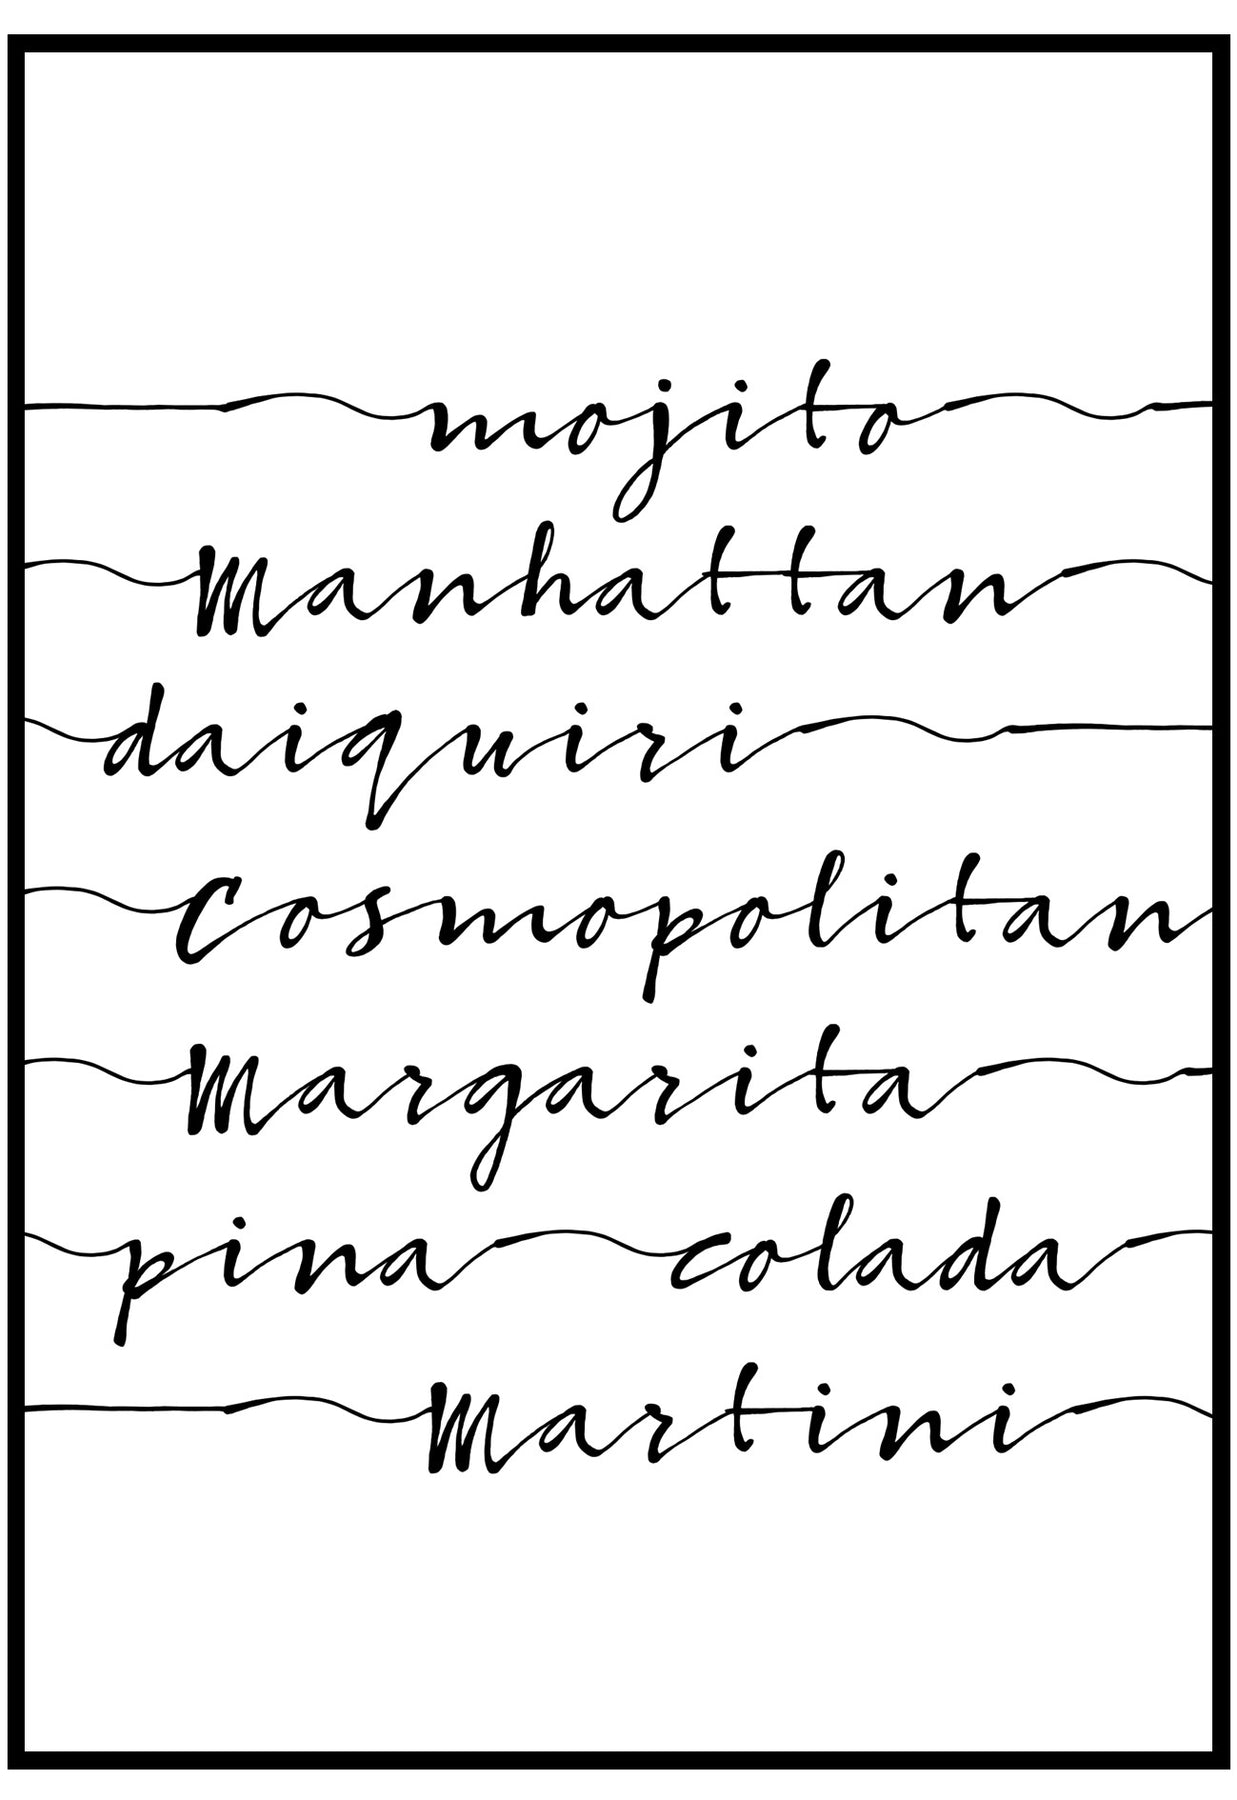 mojito
Manhattan
daiquiri
Cosmopolitan
Margarita
pina colada
Martini